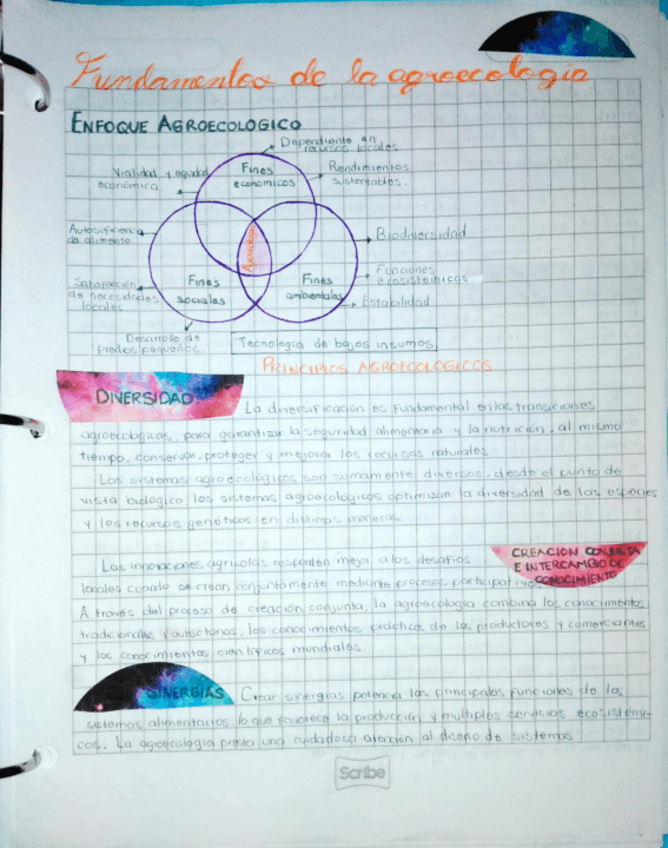 Fundamentos de la agroecología
ENFOQUE AGROECOLOGICO
Dependiente en
recursos locales
Vialidad y equidad
económica
Fines
economicos
Rendimientos
sustentables.
Autosuficiencia
de alimento
Agroecología
Biodiversidad
Funciones
ecosistemicas
Satisfacción
de necesidades
locales
Fines
sociales
Fines
ambientales
Estabilidad
Desarrollo de
predios pequeños
Tecnología de bajos insumos
PRINCIPIOS AGROECOLOGICOS
DIVERSIDAD
La diversificación es fundamental en las transiciones
agroecologicas, para garantizar la seguridad alimentaria y la nutrición, al mismo
tiempo, conservar, proteger y mejorar los recursos naturales.
Los sistemas agroecológicos son sumamente diversos, desde el punto de
vista biológico los sistemas agroecologicos optimizan la diversidad de las especies
y los recursos genéticos en distintas maneras.
CREACION CONJUNTA
E INTERCAMBIO DE
CONOCIMIENTO
Las innovaciones agricolas responden mejor a los desafios
locales cuando se crean conjuntamente mediante procesos participativos
A través del proceso de creación conjunta, la agroecología combina los conocimientos
tradicionales y autoctonos, los conocimientos practicos de los productores y comerciantes
y los conocimientos cientificos mundiales.
SINERGIAS
Crear sinergias potencia las principales funciones de los
sistemas alimentarios lo que favorece la producción y múltiples servicios ecosistémi-
cos. La agroecología presta una cuidadosa atención al diseño de sistemas
Scribe